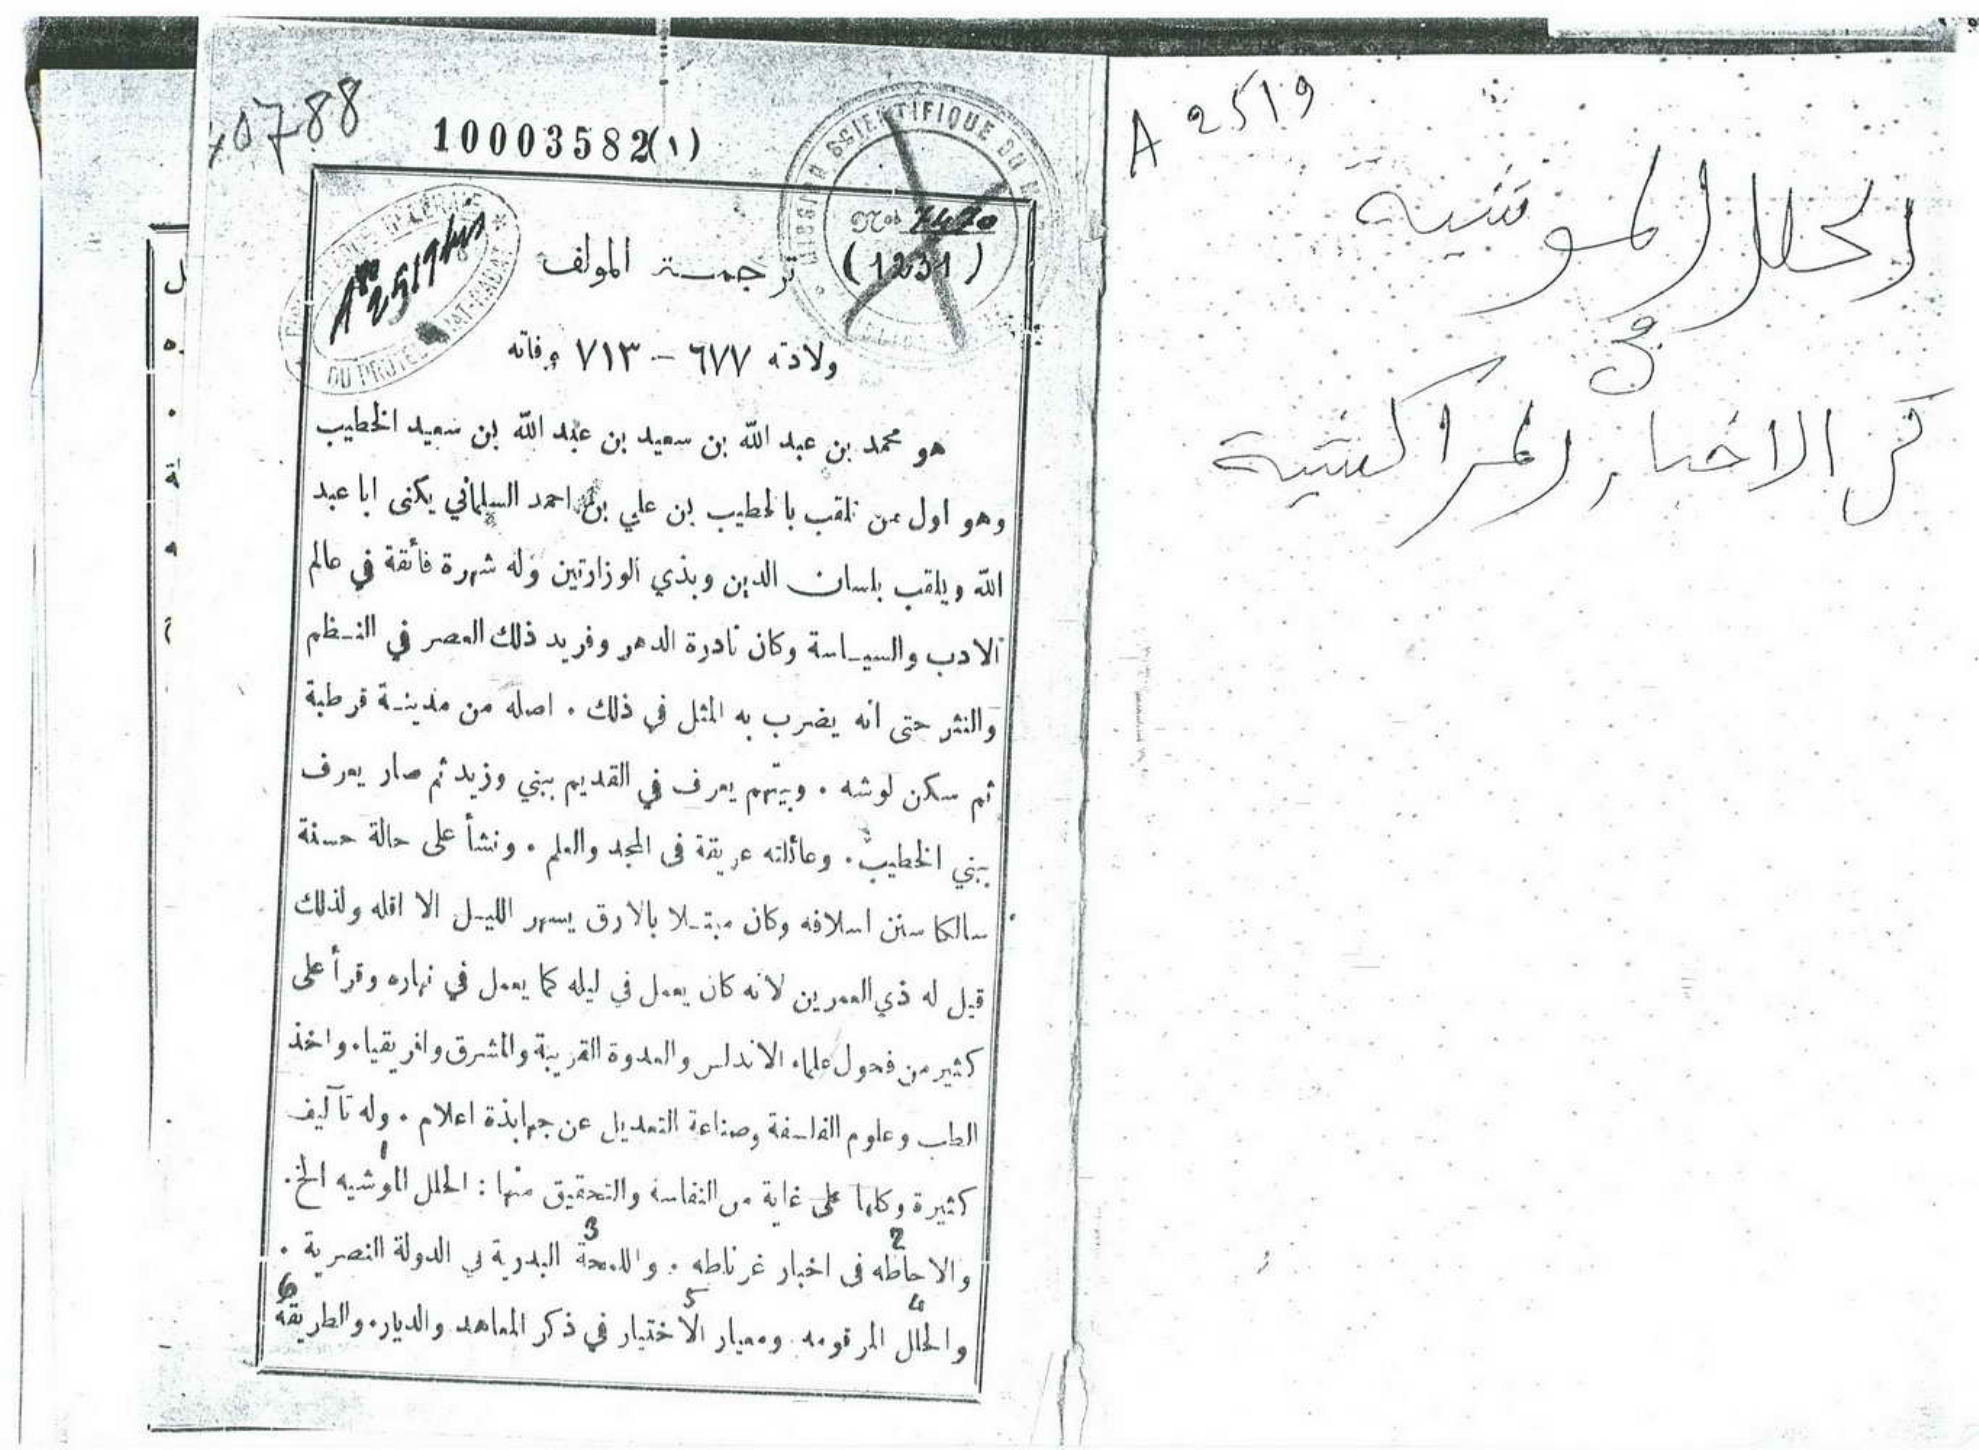 A 2519
الحلل الموشية
في
ذكر الاخبار المراكشية
10788
10003582(١)
MISSION SCIENTIFIQUE DU
Nos 2420
(1231)
A 2519
DU PROTECTORAT-RABAT
ترجمة المولف
ولادته ٦٧٧ – ٧١٣ وفاته
هو محمد بن عبد الله بن سعيد بن عبد الله بن سعيد الخطيب
وهو اول من تلقب بالخطيب بن علي بن احمد السلماني يكنى ابا عبد
الله ويلقب بلسان الدين وبذي الوزارتين وله شهرة فأئقة في عالم
الادب والسياسة وكان نادرة الدهر وفريد ذلك العصر في النظم
والنثر حتى انه يضرب به المثل في ذلك . اصله من مدينة قرطبة
ثم سكن لوشه . وبيتهم يعرف في القديم ببني وزيد ثم صار يعرف
ببني الخطيب . وعائلته عريقة فى المجد والعلم . ونشأ على حالة حسنة
سالكا سنن اسلافه وكان مبتلا بالارق يسهر الليل الا اقله ولذلك
قيل له ذي العمرين لانه كان يعمل في ليله كما يعمل في نهاره وقرأ على
كثير من فحول علماء الاندلس والعدوة القريبة والمشرق وافريقيا . واخذ
الطب وعلوم الفلسفة وصناعة التعديل عن جهابذة اعلام . وله تآليف
1
كثيرة وكلها على غاية من النفاسة والتحقيق منها : الحلل الموشيه الخ .
3 2
والاحاطه فى اخبار غرناطه . واللمحة البدرية في الدولة النصرية .
6 5 4
والحلل المرقومه ومعيار الاختيار في ذكر المعاهد والديار . والطريقة